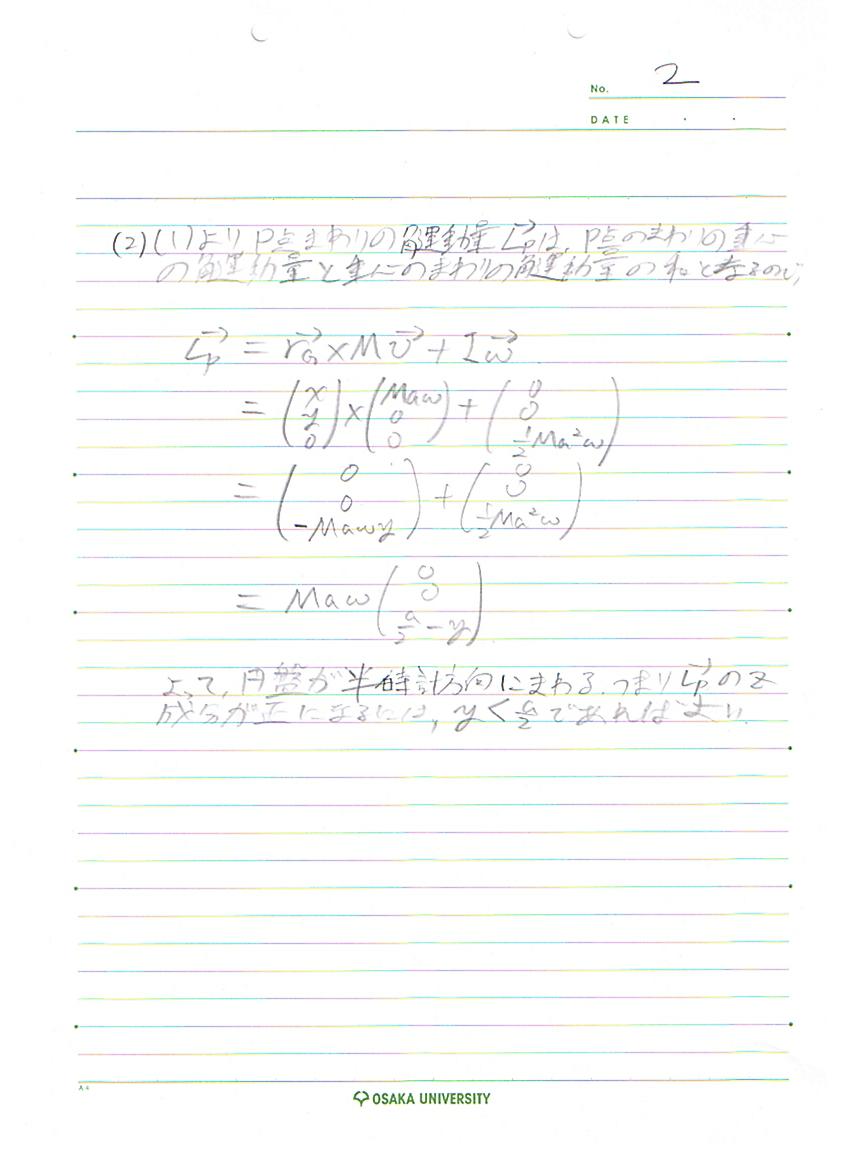 No. 2
DATE
(2) (1)より P点まわりの角運動量 L_P→は, P点のまわりの重心
の角運動量と重心のまわりの角運動量の和となるので,
L_P→ = r_G→ × M v→ + I ω→
= (x y 0) × (Maω 0 0) + (0 0 1/2 Ma²ω)
= (0 0 -Maωy) + (0 0 1/2 Ma²ω)
= Maω (0 0 a/2 - y)
よって, 円盤が半時計方向にまわる. つまり L_P→ の z
成分が正になるには, y < a/2 であればよい.
A4
OSAKA UNIVERSITY